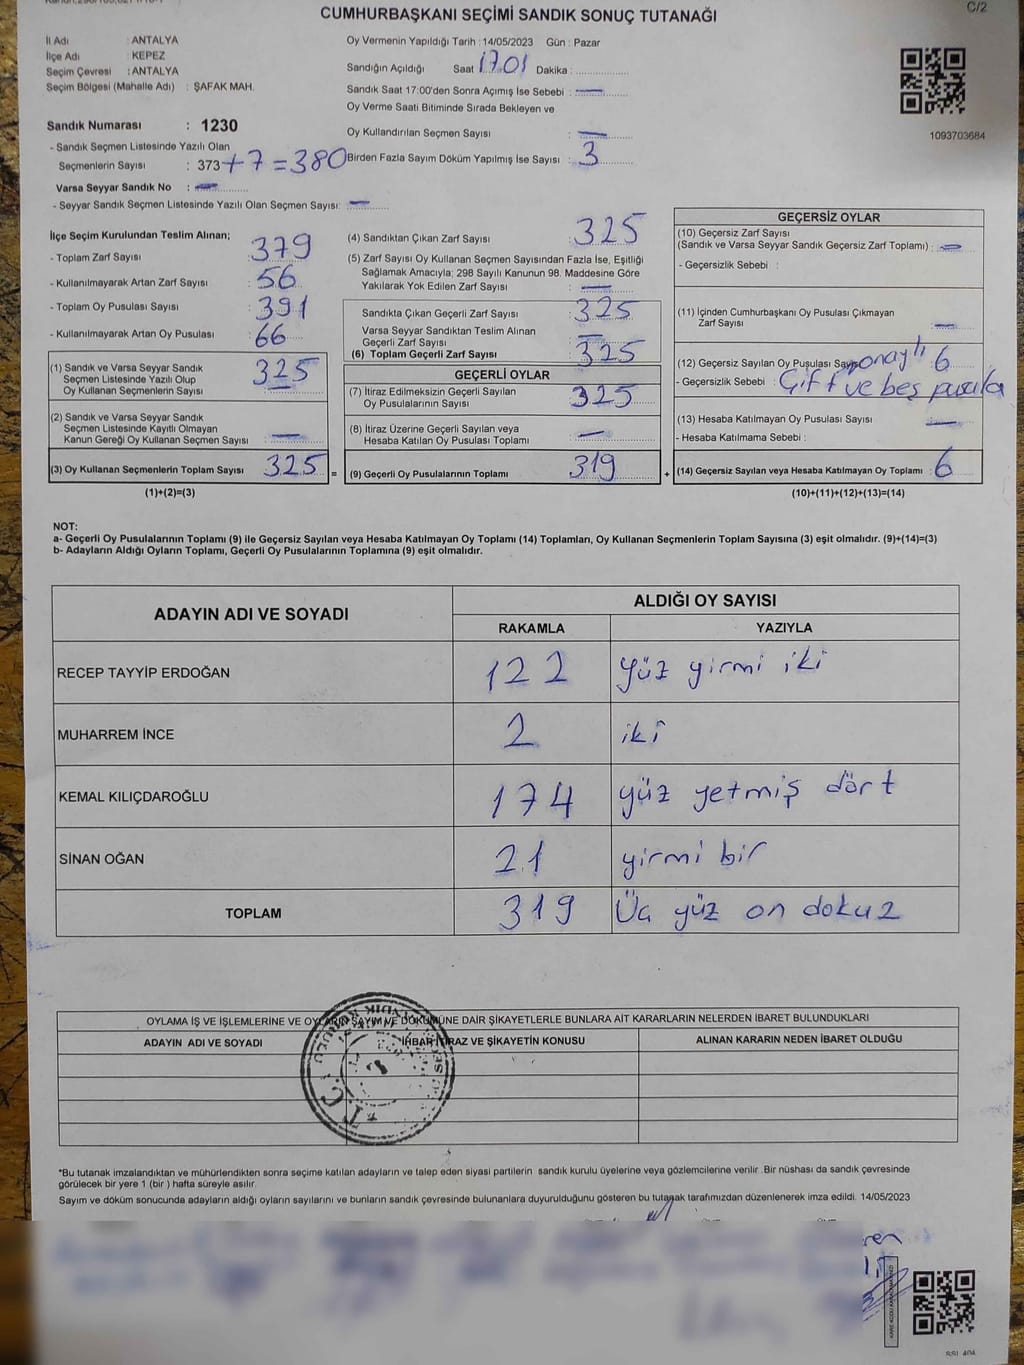 CUMHURBAŞKANI SEÇİMİ SANDIK SONUÇ TUTANAĞI
C/2
İl Adı : ANTALYA
İlçe Adı : KEPEZ
Seçim Çevresi : ANTALYA
Seçim Bölgesi (Mahalle Adı) : ŞAFAK MAH.
Oy Vermenin Yapıldığı Tarih : 14/05/2023 Gün : Pazar
Sandığın Açıldığı Saat 17 01 Dakika :
Sandık Saat 17:00'den Sonra Açımış İse Sebebi : —
Oy Verme Saati Bitiminde Sırada Bekleyen ve
Oy Kullandırılan Seçmen Sayısı : —
Birden Fazla Sayım Döküm Yapılmış İse Sayısı : 3
1093703684
Sandık Numarası : 1230
- Sandık Seçmen Listesinde Yazılı Olan
Seçmenlerin Sayısı : 373 + 7 = 380
Varsa Seyyar Sandık No : —
- Seyyar Sandık Seçmen Listesinde Yazılı Olan Seçmen Sayısı: —
İlçe Seçim Kurulundan Teslim Alınan;
- Toplam Zarf Sayısı : 379
- Kullanılmayarak Artan Zarf Sayısı : 56
- Toplam Oy Pusulası Sayısı : 391
- Kullanılmayarak Artan Oy Pusulası : 66
(1) Sandık ve Varsa Seyyar Sandık
Seçmen Listesinde Yazılı Olup
Oy Kullanan Seçmenlerin Sayısı : 325
(2) Sandık ve Varsa Seyyar Sandık
Seçmen Listesinde Kayıtlı Olmayan
Kanun Gereği Oy Kullanan Seçmen Sayısı : —
(3) Oy Kullanan Seçmenlerin Toplam Sayısı : 325 =
(1)+(2)=(3)
(4) Sandıktan Çıkan Zarf Sayısı : 325
(5) Zarf Sayısı Oy Kullanan Seçmen Sayısından Fazla İse, Eşitliği
Sağlamak Amacıyla; 298 Sayılı Kanunun 98. Maddesine Göre
Yakılarak Yok Edilen Zarf Sayısı : —
Sandıkta Çıkan Geçerli Zarf Sayısı : 325
Varsa Seyyar Sandıktan Teslim Alınan
Geçerli Zarf Sayısı : —
(6) Toplam Geçerli Zarf Sayısı : 325
GEÇERLİ OYLAR
(7) İtiraz Edilmeksizin Geçerli Sayılan
Oy Pusulalarının Sayısı : 325
(8) İtiraz Üzerine Geçerli Sayılan veya
Hesaba Katılan Oy Pusulası Toplamı : —
(9) Geçerli Oy Pusulalarının Toplamı : 319 +
GEÇERSİZ OYLAR
(10) Geçersiz Zarf Sayısı
(Sandık ve Varsa Seyyar Sandık Geçersiz Zarf Toplamı) : —
- Geçersizlik Sebebi :
(11) İçinden Cumhurbaşkanı Oy Pusulası Çıkmayan
Zarf Sayısı : —
(12) Geçersiz Sayılan Oy Pusulası 6
- Geçersizlik Sebebi : Çift ve beş pusula
(13) Hesaba Katılmayan Oy Pusulası Sayısı : —
- Hesaba Katılmama Sebebi :
(14) Geçersiz Sayılan veya Hesaba Katılmayan Oy Toplamı : 6
(10)+(11)+(12)+(13)=(14)
NOT:
a- Geçerli Oy Pusulalarının Toplamı (9) ile Geçersiz Sayılan veya Hesaba Katılmayan Oy Toplamı (14) Toplamları, Oy Kullanan Seçmenlerin Toplam Sayısına (3) eşit olmalıdır. (9)+(14)=(3)
b- Adayların Aldığı Oyların Toplamı, Geçerli Oy Pusulalarının Toplamına (9) eşit olmalıdır.
ADAYIN ADI VE SOYADI
ALDIĞI OY SAYISI
RAKAMLA YAZIYLA
RECEP TAYYİP ERDOĞAN 122 yüz yirmi iki
MUHARREM İNCE 2 iki
KEMAL KILIÇDAROĞLU 174 yüz yetmiş dört
SİNAN OĞAN 21 yirmi bir
TOPLAM 319 Üç yüz on dokuz
OYLAMA İŞ VE İŞLEMLERİNE VE OYLARIN SAYIM VE DÖKÜMÜNE DAİR ŞİKAYETLERLE BUNLARA AİT KARARLARIN NELERDEN İBARET BULUNDUKLARI
ADAYIN ADI VE SOYADI İHBAR İTİRAZ VE ŞİKAYETİN KONUSU ALINAN KARARIN NEDEN İBARET OLDUĞU
T.C.
*Bu tutanak imzalandıktan ve mühürlendikten sonra seçime katılan adayların ve talep eden siyasi partilerin sandık kurulu üyelerine veya gözlemcilerine verilir .Bir nüshası da sandık çevresinde
görülecek bir yere 1 (bir ) hafta süreyle asılır.
Sayım ve döküm sonucunda adayların aldığı oyların sayılarını ve bunların sandık çevresinde bulunanlara duyurulduğunu gösteren bu tutanak tarafımızdan düzenlenerek imza edildi. 14/05/2023